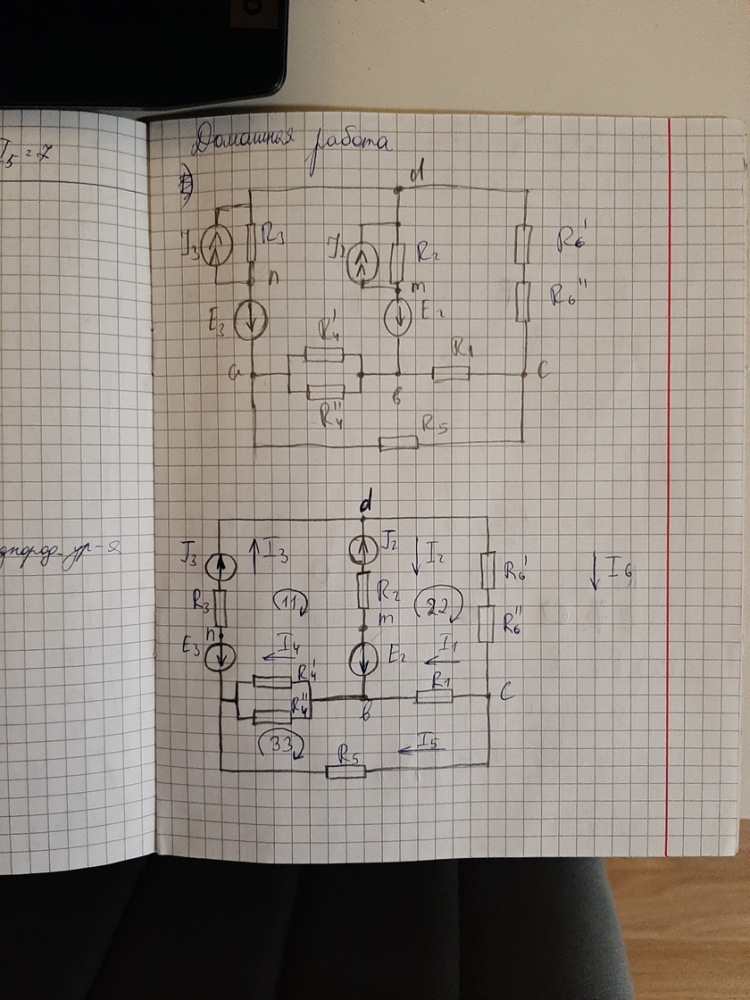 J₅ = 7
Домашная работа
1)
d
J₃ R₃ J₂ R₂ R₆'
n m
E₃ E₂ R₆''
R₄' R₁
a в c
R₄'' R₅
d
J₃ I₃ J₂ I₂ R₆' I₆
R₃ 11 R₂ 22
n m R₆''
E₃ I₄ E₂ I₁
R₄' R₁ c
R₄'' в
33 R₅ I₅